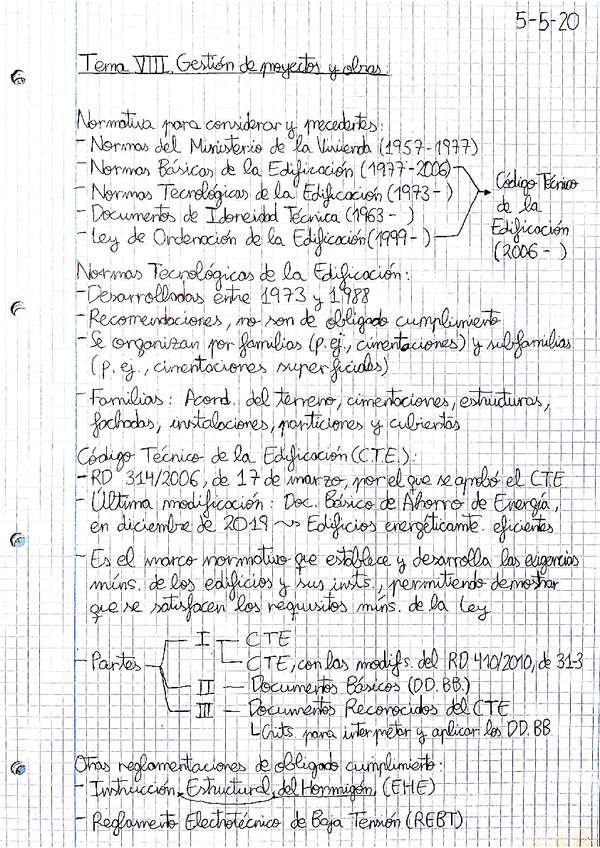 5-5-20
Tema VIII. Gestión de proyectos y obras:
Normativa para considerar y precedentes:
- Normas del Ministerio de la Vivienda (1957-1977)
- Normas Básicas de la Edificación (1977-2006)
- Normas Tecnológicas de la Edificación (1973- )
- Documentos de Idoneidad Técnica (1963- )
- Ley de Ordenación de la Edificación (1999- )
Código Técnico
de la
Edificación
(2006- )
Normas Tecnológicas de la Edificación:
- Desarrolladas entre 1973 y 1988
- Recomendaciones, no son de obligado cumplimiento
- Se organizan por familias (p. ej., cimentaciones) y subfamilias
(p. ej., cimentaciones superficiales)
- Familias: Acond. del terreno, cimentaciones, estructuras,
fachadas, instalaciones, particiones y cubiertas
Código Técnico de la Edificación (C.T.E.):
- RD 314/2006, de 17 de marzo, por el que se aprobó el CTE
- Última modificación: Doc. Básico de Ahorro de Energía,
en diciembre de 2019 ~> Edificios energéticamte. eficientes
- Es el marco normativo que establece y desarrolla las exigencias
míns. de los edificios y sus insts., permitiendo demostrar
que se satisfacen los requisitos míns. de la Ley
- Partes
I - CTE
CTE, con las modifs. del RD 410/2010, de 31-3
II - Documentos Básicos (DD.BB.)
III - Documentos Reconocidos del CTE
Crits. para interpretar y aplicar los DD.BB.
Otras reglamentaciones de obligado cumplimiento:
- Instrucción Estructural del Hormigón, (EHE)
- Reglamento Electrotécnico de Baja Tensión (REBT)